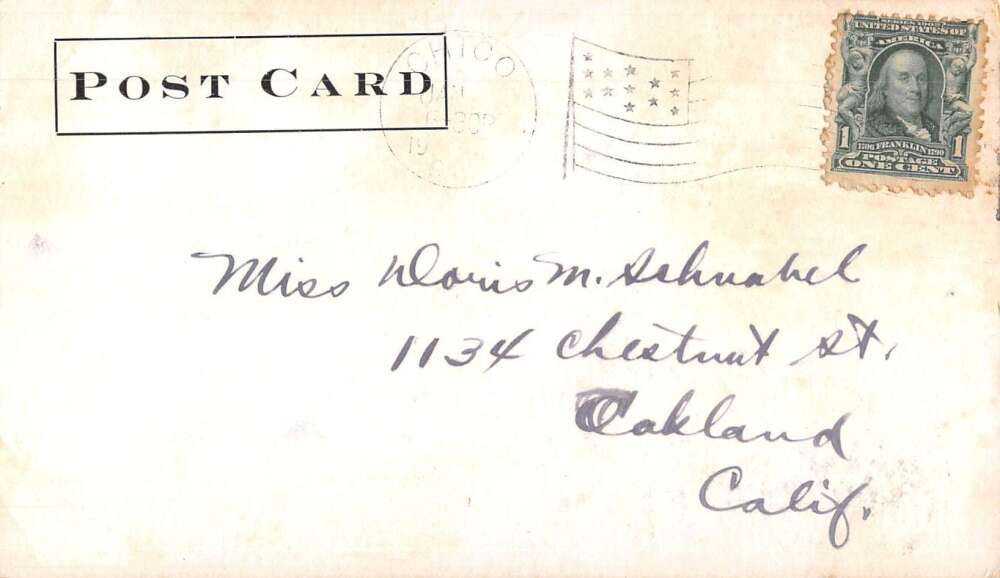 POST CARD
CHICO
630P
19
SERIES 1902
UNITED STATES OF
AMERICA
1 1706 FRANKLIN 1790 1
POSTAGE
ONE CENT
Miss Doris M. Schnabel
1134 Chestnut St.
Oakland
Calif.